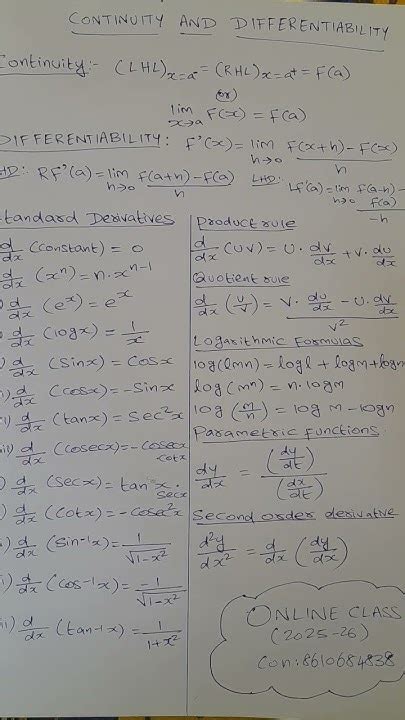 CONTINUITY AND DIFFERENTIABILITY
Continuity:- (LHL)x=a⁻ = (RHL)x=a⁺ = F(a)
(or)
lim x→a F(x) = F(a)
DIFFERENTIABILITY: F'(x) = lim h→0 F(x+h) - F(x) / h
HD: RF'(a) = lim h→0 f(a+h) - f(a) / h
LHD: Lf'(a) = lim h→0 f(a-h) - f(a) / -h
tandard Derivatives
d/dx (constant) = 0
d/dx (xⁿ) = n.xⁿ⁻¹
d/dx (eˣ) = eˣ
d/dx (logx) = 1/x
d/dx (sinx) = cosx
d/dx (cosx) = -sinx
d/dx (tanx) = sec²x
d/dx (cosecx) = -cosecx cotx
d/dx (secx) = tanx. secx
d/dx (cotx) = -cosec²x
d/dx (sin-1x) = 1/√1-x²
d/dx (cos-1x) = -1/√1-x²
d/dx (tan-1x) = 1/1+x²
Product rule
d/dx (UV) = U. dV/dx + V. dU/dx
Quotient rule
d/dx (U/V) = V. dU/dx - U. dV/dx / V²
Logarithmic Formulas
log(lmn) = logl + logm + logn
log(mⁿ) = n.logm
log(m/n) = log m - logn
Parametric functions
dy/dx = (dy/dt) / (dx/dt)
Second order derivative
d²y/dx² = d/dx (dy/dx)
ONLINE CLASS
(2025-26)
Con: 8610684838